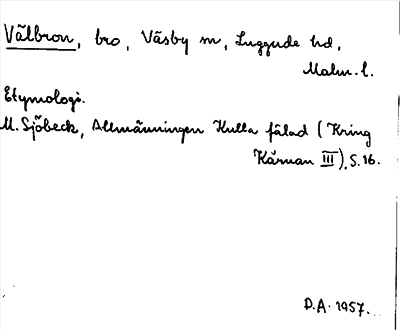 Välbron, bro, Väsby sn, Luggude hd,
Malm. l.
Etymologi.
M. Sjöbeck, Allmänningen Kulla fälad (Kring
Kärnan III), S. 16.
D.A. 1957.